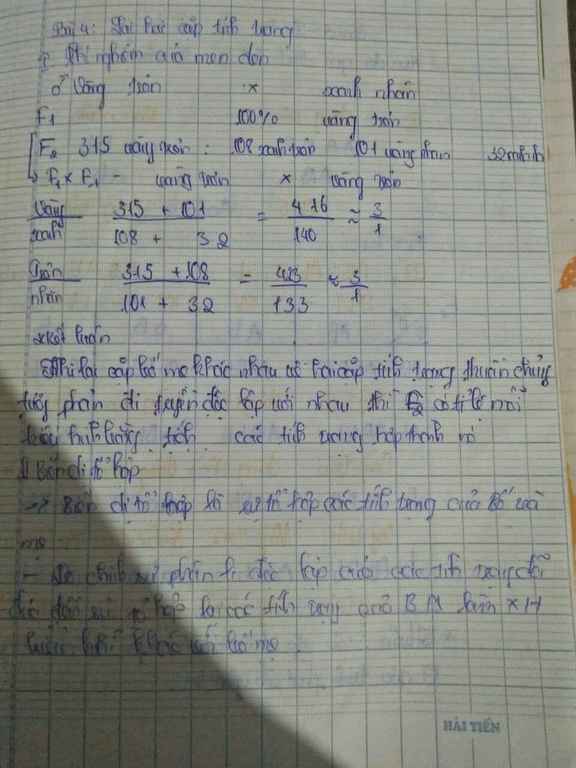 Bài 4: Lai hai cặp tính trạng
I Thí nghiệm của men đen
Vàng trơn × xanh nhăn
F1 100% vàng trơn
F2 315 vàng trơn : 108 xanh trơn 101 vàng nhăn 32
F1 × F1 - vàng trơn × vàng trơn
Vàng 315 + 101 = 416 ≈ 3
xanh 108 + 32 140 1
Trơn 315 + 108 = 423 ≈ 3
nhăn 101 + 32 133 1
* kết luận
lai cặp bố mẹ khác nhau về hai cặp tính trạng thuần chủng
phân di truyền độc lập với nhau thì F2 có tỉ lệ mỗi
kiểu hình bằng tích các tính trạng hợp thành nó
Biến dị tổ hợp
-> Biến dị tổ hợp là sự tổ hợp các tính trạng của Bố và
mẹ
- chính sự phân li độc lập của các tính trạng đã
đến sự tổ hợp lại các tính trạng của B M làm × H
kiểu hình khác với bố mẹ
HẢI TIẾN